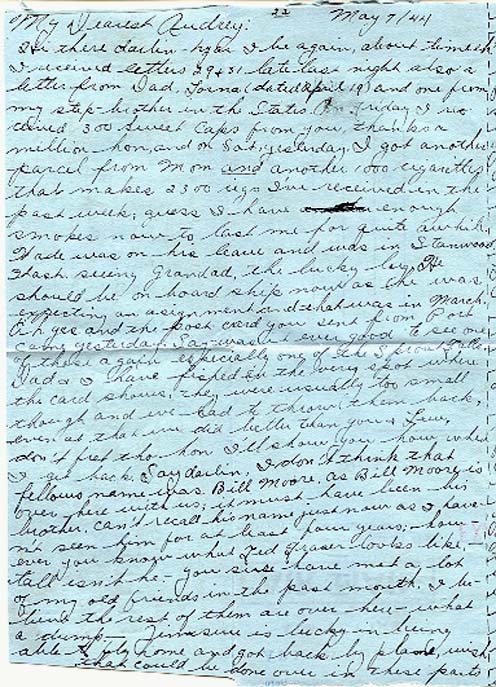 22 May 7/44
"My Dearest Audrey:
Hi there darlin - hyar I be again, about time eh
I received letters 29 & 31 late last night also a
letter from Dad, Torna (dated April 19) and one from
my step-brother in the States. On Friday I re-
ceived 300 Sweet Caps from you, thanks a
million hon, and on Sat, yesterday, I got another
parcel from Mom and another 1000 cigarettes
that makes 2300 cigs I've received in the
past week; guess I have enough
smokes now to last me for quite awhile.
Wade was on his leave and was in Stanwood
Wash. seeing Grandad, the lucky boy. He
should be on board ship now as he was
expecting an assignment and that was in March.
Oh yes and the post card you sent from Port
came yesterday. Say was it ever good to see one
of those again especially one of the Sproat Falls
Dad & I have fished in the very spot where
the card shows; they were usually too small
though and we had to throw them back,
even at that we did better than you & Lew,
don't fret tho hon I'll show you how when
I get back. Say darlin, I don't think that
fellows name was Bill Moore, as Bill Moore is
over here with us; it must have been his
brother, can't recall his name just now as I have
n't seen him for at least four years; how-
ever you know what Ted Fraser looks like,
tall isn't he - you sure have met a lot
of my old friends in the past month. I be-
lieve the rest of them are over here - what
a dump - is lucky in being
able to fly home and got back by plane, wish
that could be done over in these parts